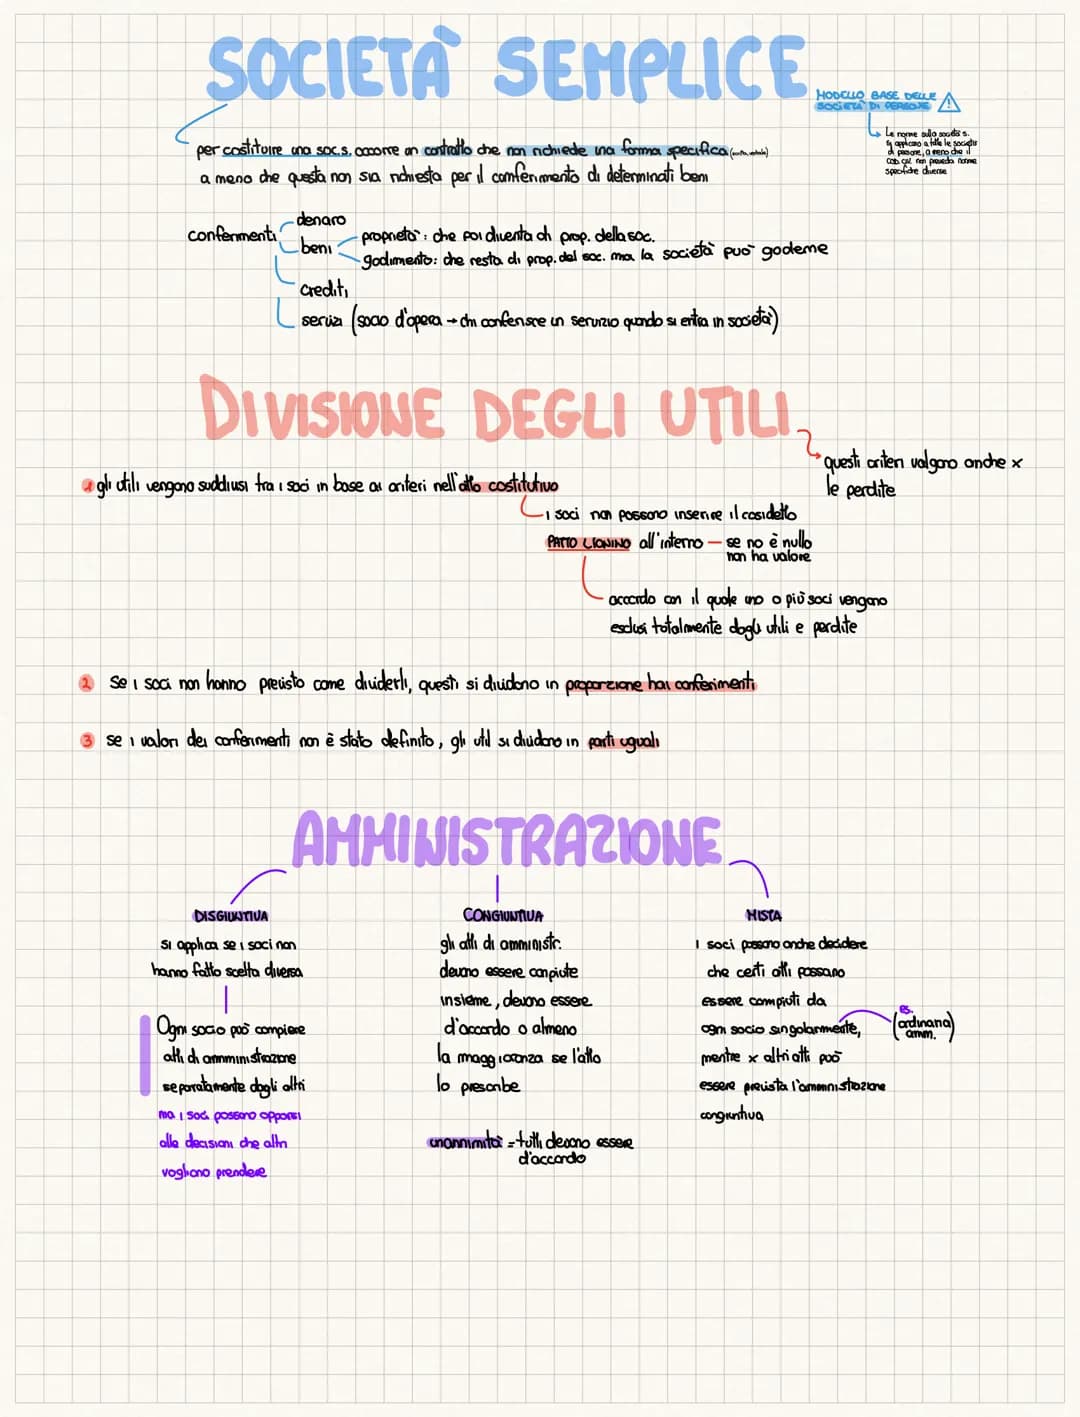 SOCIETÀ SEMPLICE
MODELLO BASE DELLE
SOCIETÀ DI PERSONE
Le norme sulla società s.
si applicano a tutte le società
di persone, a meno che il
cod. civ. non preveda norme
specifiche diverse
per costituire una soc.s. occorre un contratto che non richiede una forma specifica (scritta, verbale)
a meno che questa non sia richiesta per il conferimento di determinati beni
conferimenti
denaro
beni
proprietà: che poi diventa di prop. della soc.
godimento: che resta di prop. del soc. ma la società può goderne
crediti
servizi (socio d'opera → chi conferisce un servizio quando si entra in società)
DIVISIONE DEGLI UTILI
questi criteri valgono anche x
le perdite
1 gli utili vengono suddivisi tra i soci in base ai criteri nell'atto costitutivo
i soci non possono inserire il cosidetto
PATTO LEONINO all'interno – se no è nullo
non ha valore
accordo con il quale uno o più soci vengono
esclusi totalmente dagli utili e perdite
2 Se i soci non hanno previsto come dividerli, questi si dividono in proporzione hai conferimenti
3 se i valori dei conferimenti non è stato definito, gli util si dividono in parti uguali
AMMINISTRAZIONE
DISGIUNTIVA
si applica se i soci non
hanno fatto scelta diversa
Ogni socio può compiere
atti di ammministrazione
separatamente dagli altri
ma i soci possono opporsi
alle decisioni che altri
vogliono prendere
CONGIUNTIVA
gli atti di amministr.
devono essere compiute
insieme, devono essere
d'accordo o almeno
la maggioranza se l'atto
lo prescribe
unannimità = tutti devono essere
d'accordo
MISTA
i soci possono anche decidere
che certi atti possano
essere compiuti da
ogni socio singolarmente,
es.
(ordinaria
amm.)
mentre x altri atti può
essere prevista l'amministrazione
congiuntiva